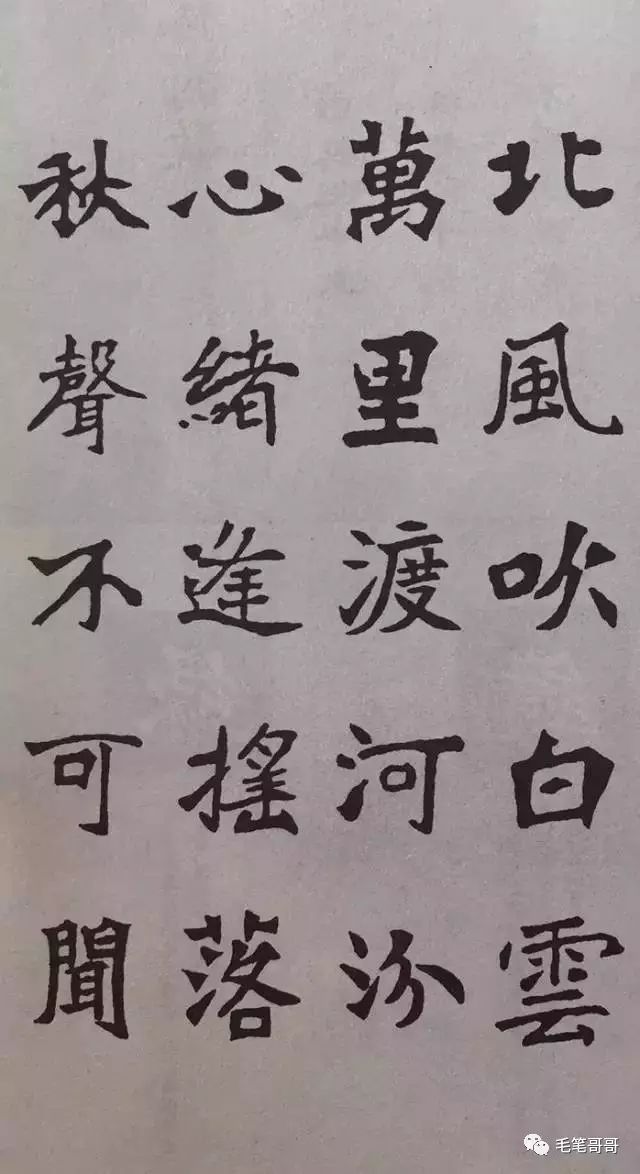 北風吹白雲
萬里渡河汾
心緒逢搖落
秋聲不可聞
毛笔哥哥